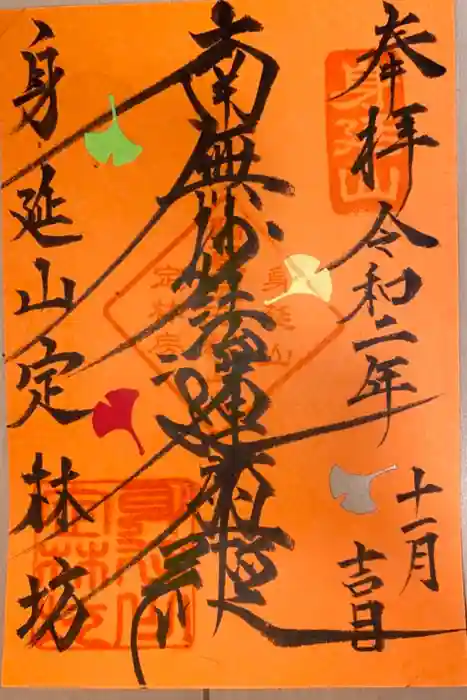 奉拝
令和二年
十一月
吉日
身延山
南無妙法蓮華経
身延山
定林房
身延山定林坊